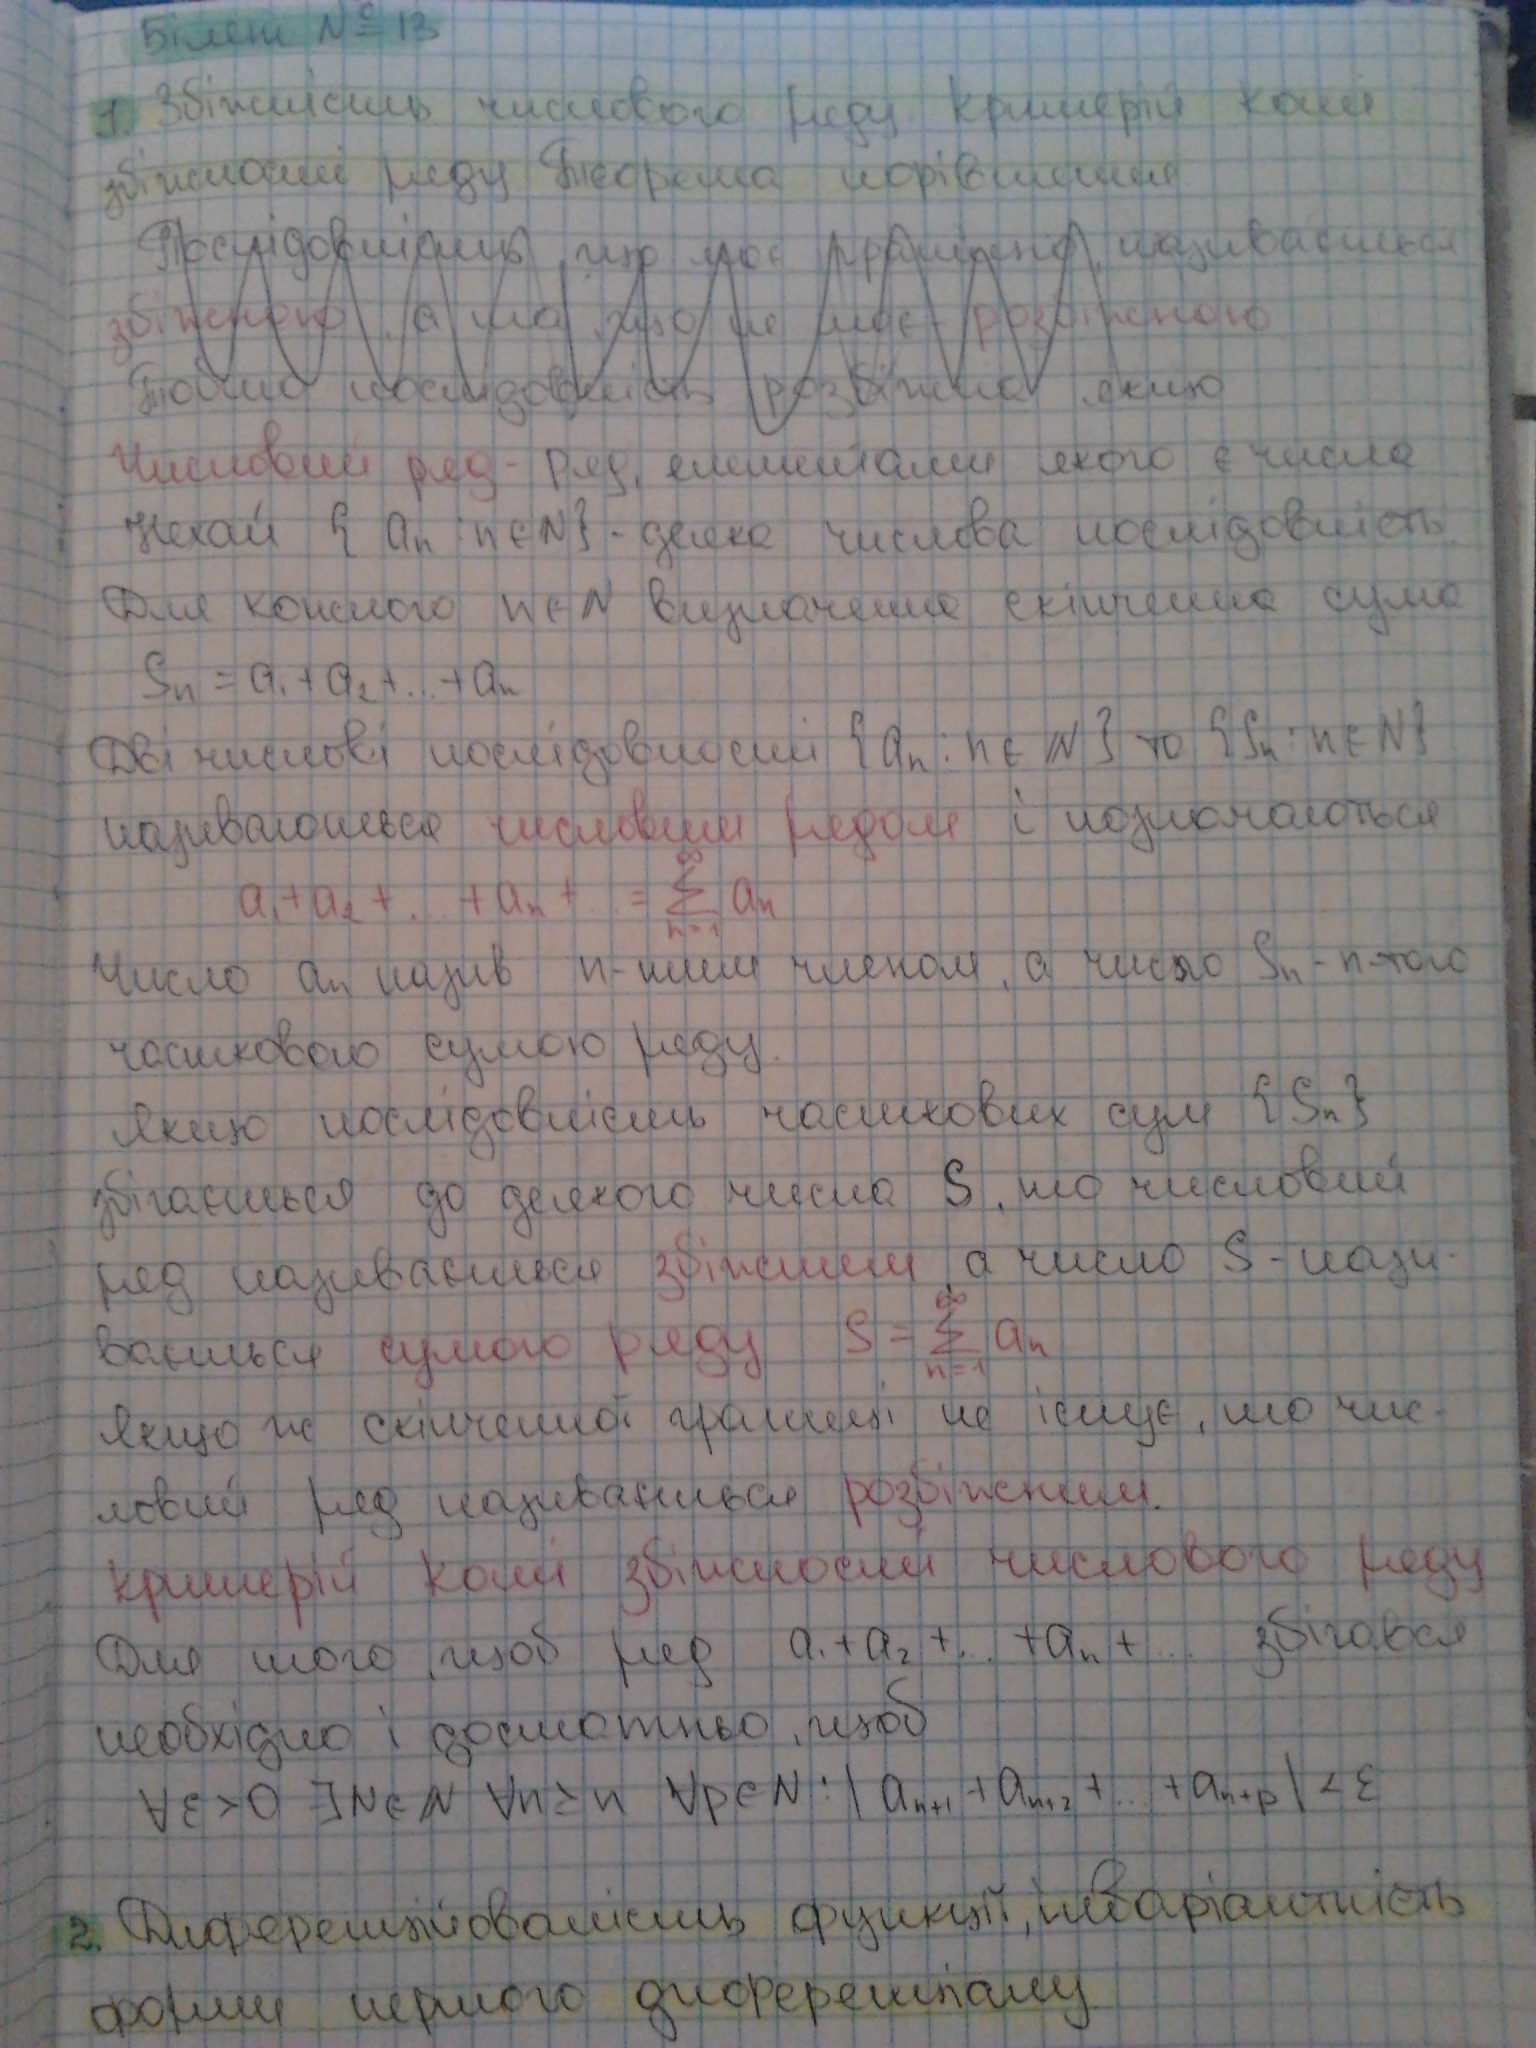 Білет № 13
1. Збіжність числового ряду. Критерій Коші
збіжності ряду Теорема порівняння
Послідовність, що має границю, називається
збіжною, а та, що не має - розбіжною
Тобто послідовність розбіжна якщо
Числовий ряд - ряд, елементами якого є числа
Нехай { an : n ∈ N } - деяка числова послідовність.
Для кожного n ∈ N визначена скінченна сума
Sn = a1 + a2 + ... + an
Дві числові послідовності { an : n ∈ N } та { Sn : n ∈ N }
називаються числовим рядом і позначаються
a1 + a2 + ... + an + ... = ∑_{n=1}^{∞} an
Число an назив n-ним членом, а число Sn - n-тою
частковою сумою ряду.
Якщо послідовність часткових сум { Sn }
збігається до деякого числа S, то числовий
ряд називається збіжним, а число S - нази-
вається сумою ряду S = ∑_{n=1}^{∞} an
Якщо ж скінченної границі не існує, то чис-
ловий ряд називається розбіжним.
Критерій Коші збіжності числового ряду
Для того, щоб ряд a1 + a2 + ... + an + ... збігався
необхідно і достатньо, щоб
∀ε < 0 ∃N ∈ N ∀n ≥ n ∀p ∈ N : | an+1 + an+2 + ... + an+p | < ε
2. Диференційовність функції, інваріантність
форми першого диференціалу